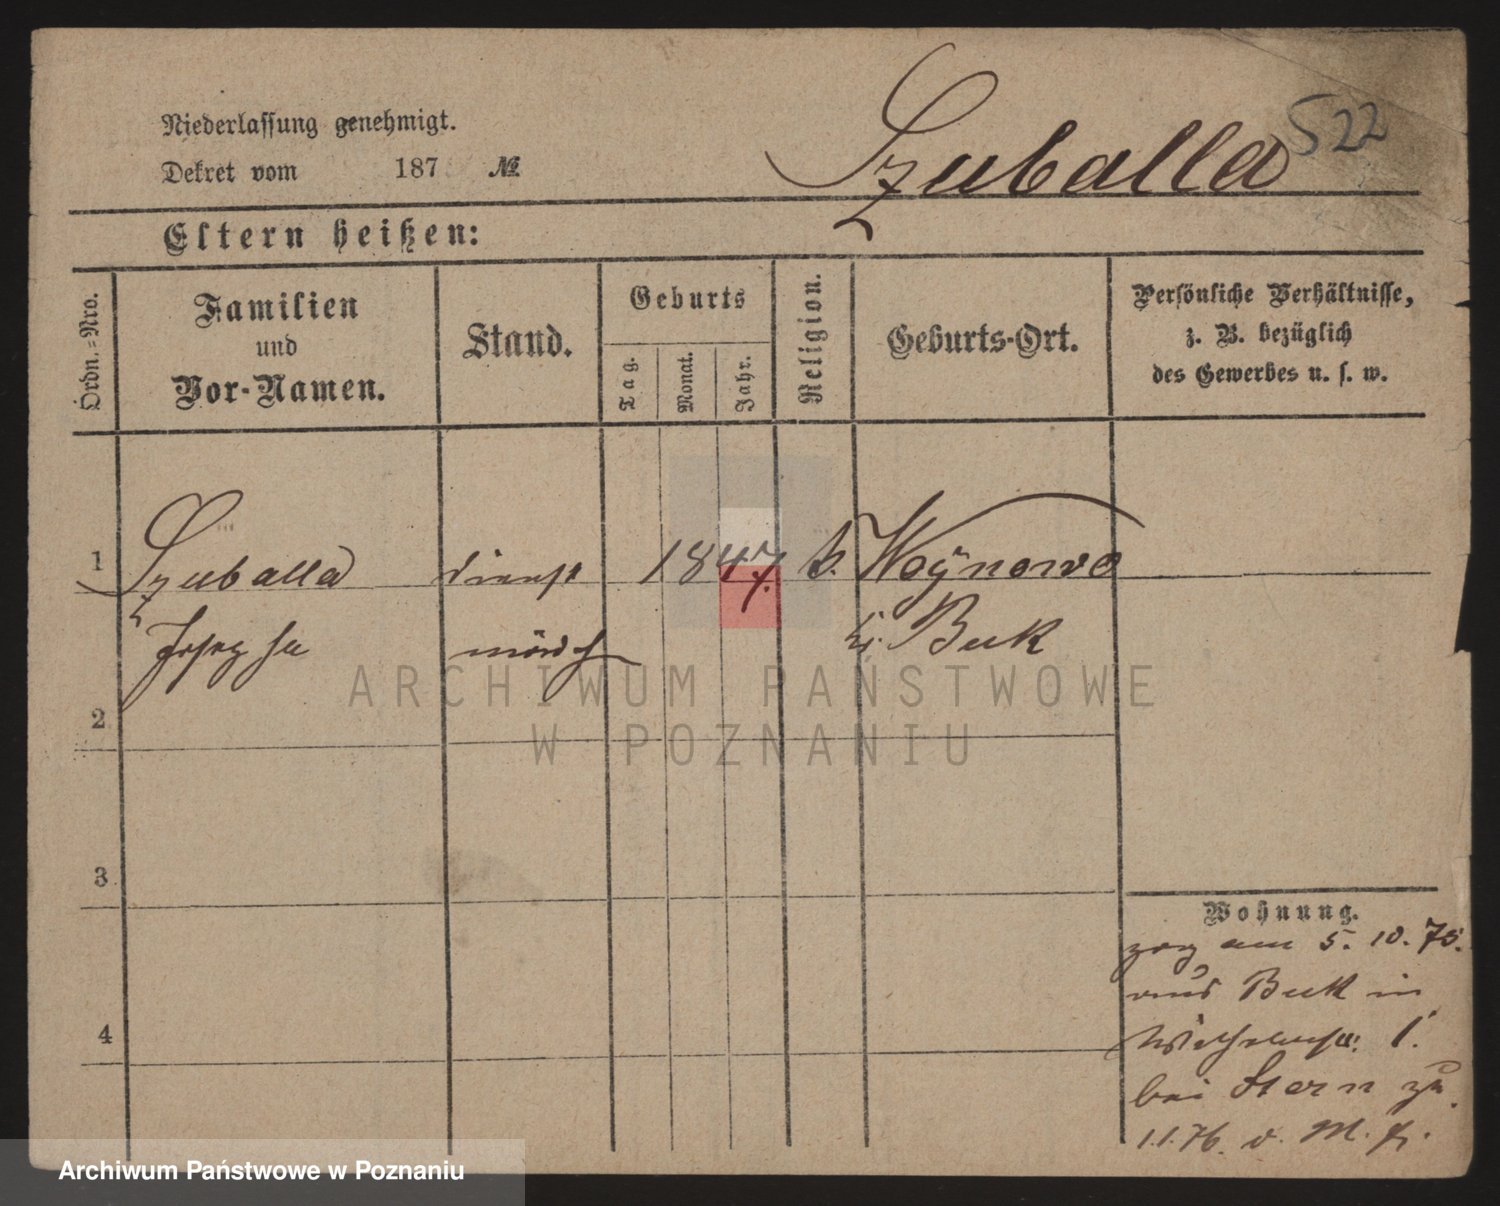 522
Niederlassung genehmigt.
Dekret vom 187 №
Szuballa
Eltern heißen:
Ordn.=Nro.
Familien
und
Vor-Namen.
Stand.
Geburts
Tag.
Monat.
Jahr.
Religion.
Geburts-Ort.
Persönliche Verhältnisse,
z. B. bezüglich
des Gewerbes u. s. w.
1
Szuballa dienst 1847. k. Woÿnowo
Josepha mädch Buk
2
3
4
Wohnung.
zog am 5. 10. 75.
aus Buk in
Wilhelmstr. 1.
bei Stern zu
1.1.76. v. M.
ARCHIWUM PAŃSTWOWE
W POZNANIU
Archiwum Państwowe w Poznaniu